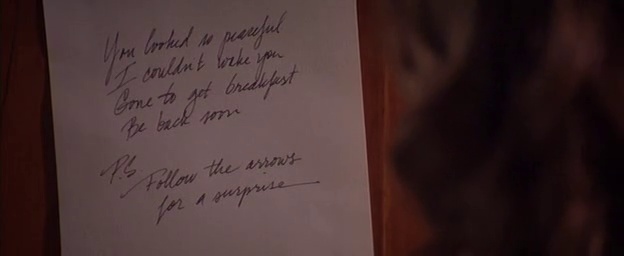 You looked so peaceful
I couldn't wake you
Gone to get breakfast
Be back soon
P.S Follow the arrows
for a surprise